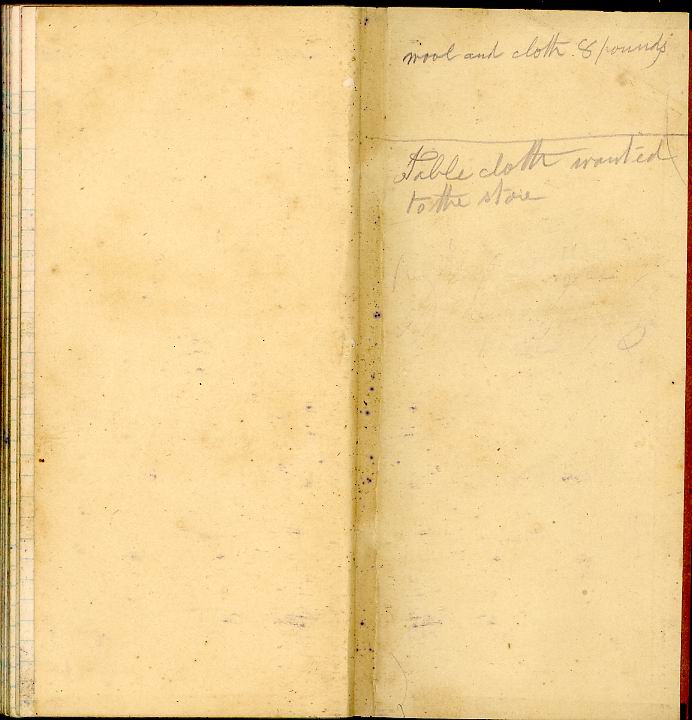 wool and cloth. 8 pounds
Table cloth wanted
to the store